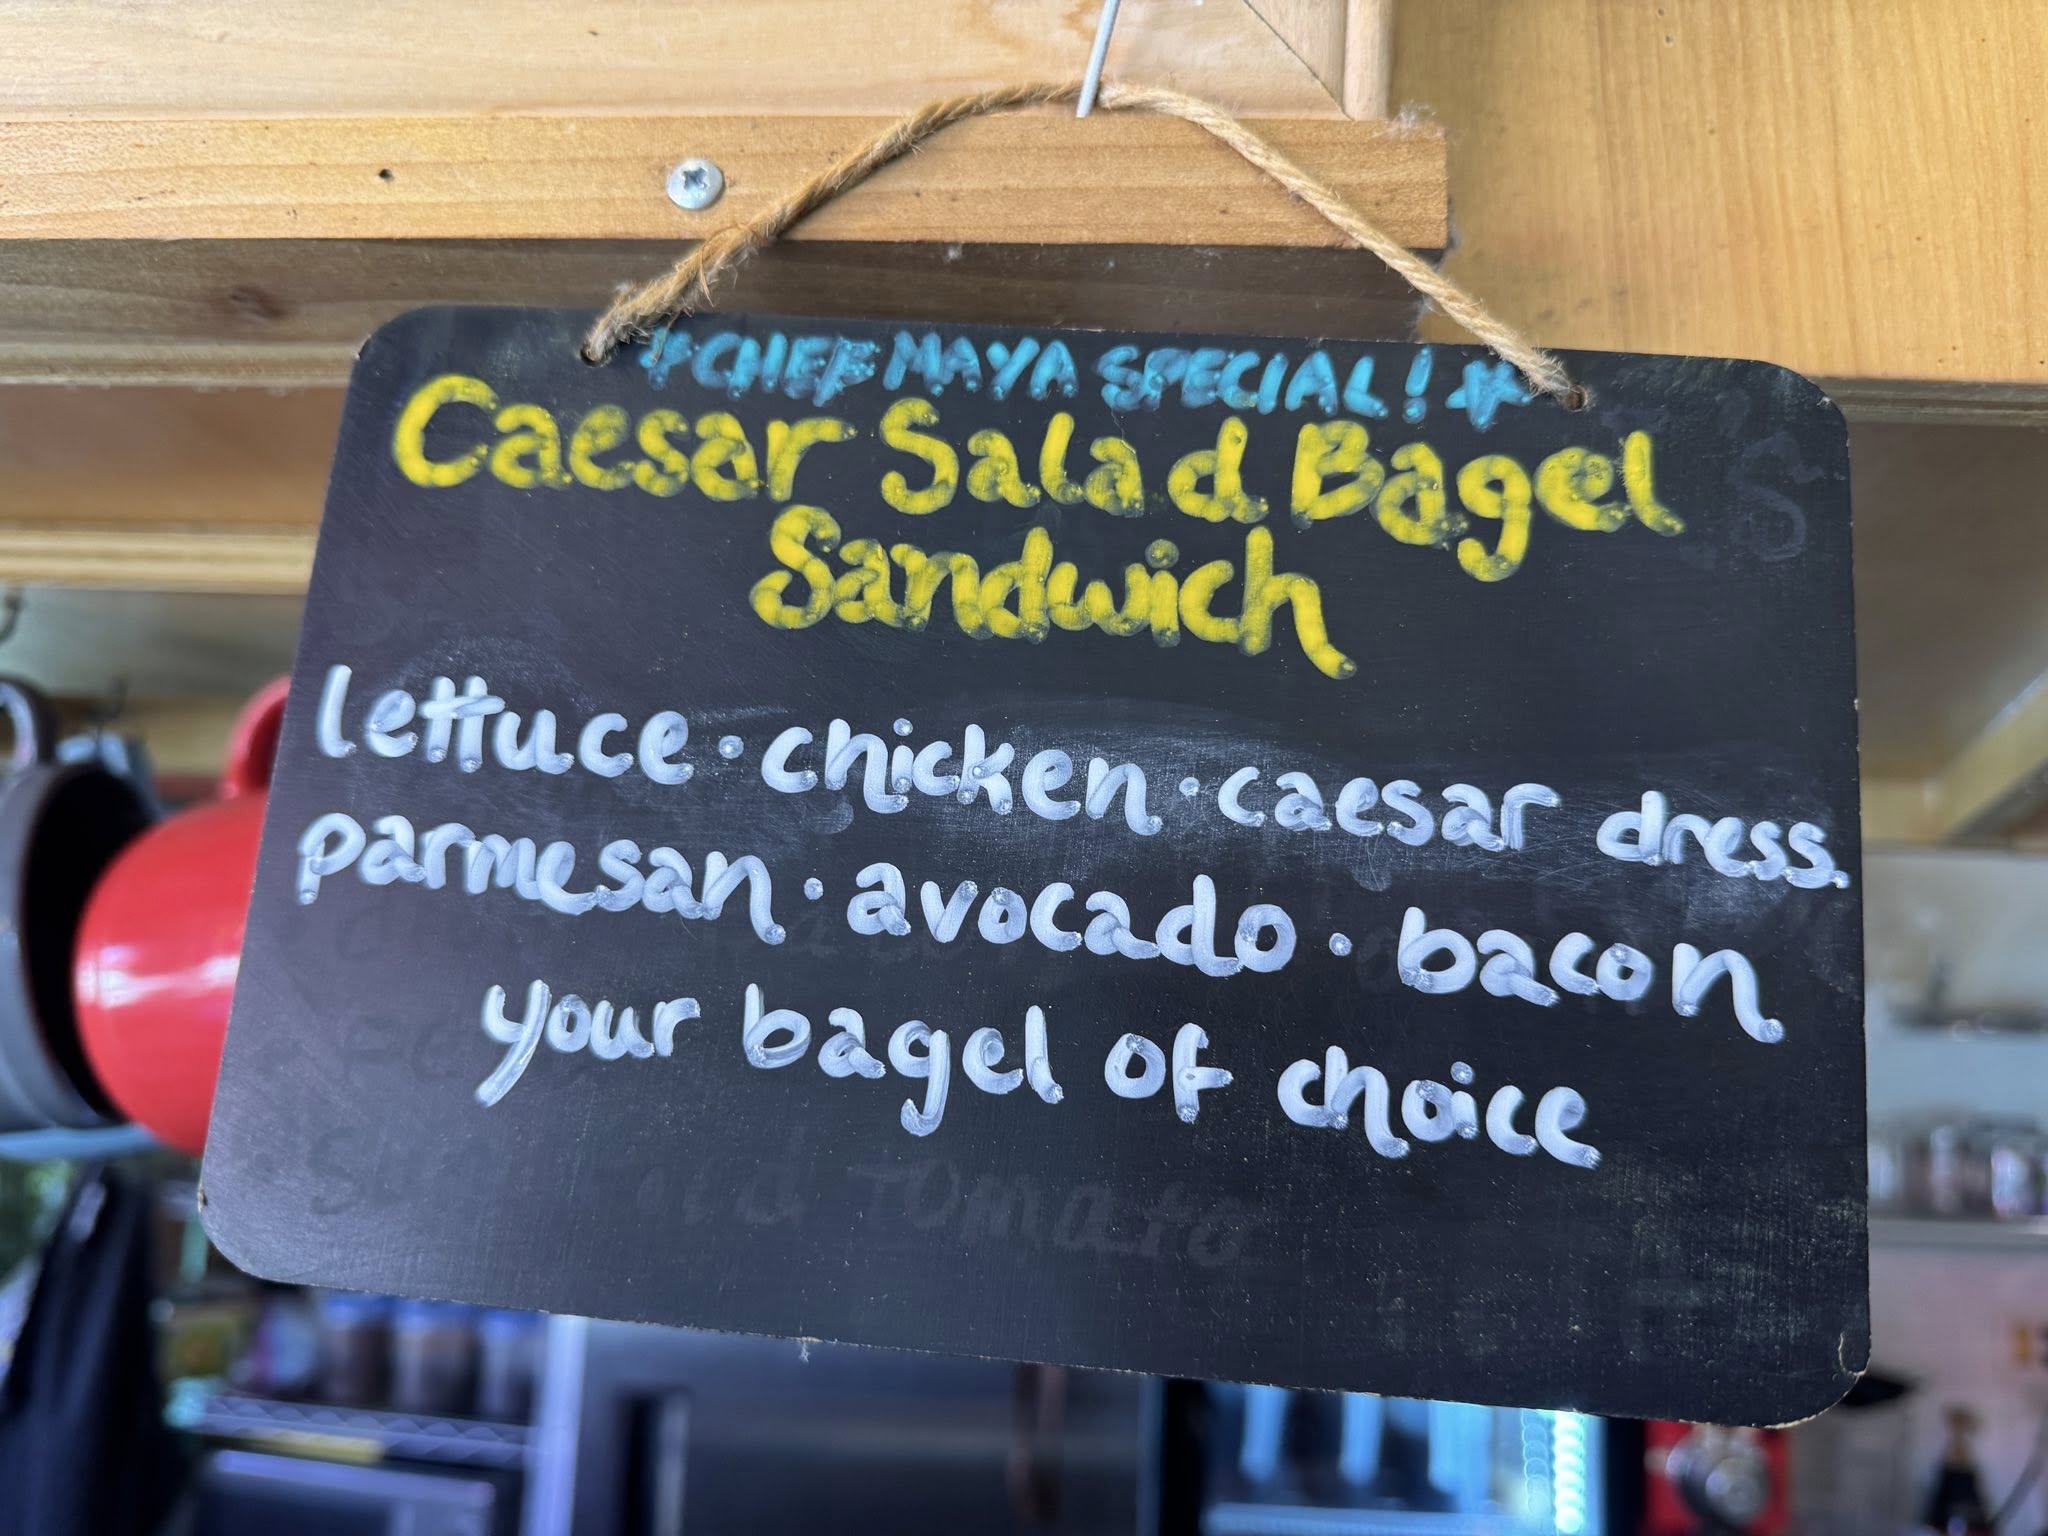 *CHEF MAYA SPECIAL!*
Caesar Salad Bagel
Sandwich
lettuce · chicken · caesar dress.
parmesan · avocado · bacon
your bagel of choice
tomato